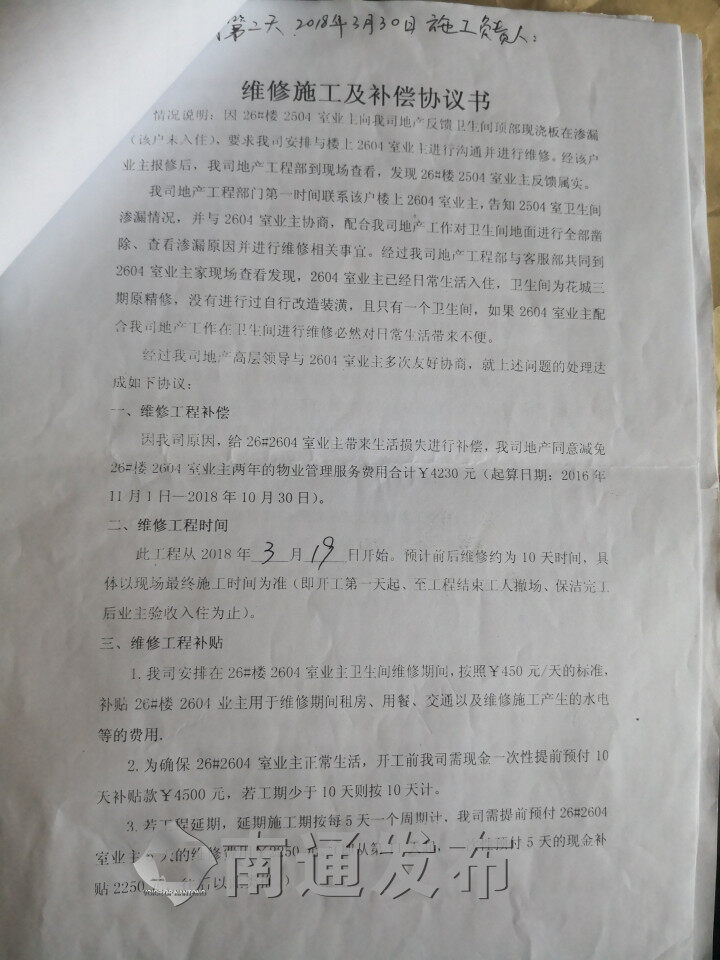 第二天 2018年3月30日 施工负责人:
维修施工及补偿协议书
情况说明:因26#楼 2504 室业主向我司地产反馈卫生间顶部现浇板在渗漏
(该户未入住),要求我司安排与楼上2604室业主进行沟通并进行维修。经该户
业主报修后,我司地产工程部到现场查看,发现 26#楼 2504 室业主反馈属实。
我司地产工程部门第一时间联系该户楼上2604室业主,告知 2504 室卫生间
渗漏情况,并与 2604 室业主协商,配合我司地产工作对卫生间地面进行全部凿
除、查看渗漏原因并进行维修相关事宜。经过我司地产工程部与客服部共同到
2604 室业主家现场查看发现,2604 室业主已经日常生活入住,卫生间为花城三
期原精修,没有进行过自行改造装潢,且只有一个卫生间,如果 2604 室业主配
合我司地产工作在卫生间进行维修必然对日常生活带来不便。
经过我司地产高层领导与 2604 室业主多次友好协商,就上述问题的处理达
成如下协议:
一、维修工程补偿
因我司原因,给 26#2604 室业主带来生活损失进行补偿,我司地产同意减免
26#楼 2604 室业主两年的物业管理服务费用合计¥4230 元(起算日期:2016 年
11 月 1 日—2018 年 10 月 30 日)。
二、维修工程时间
此工程从 2018 年 3 月 19 日开始。预计前后维修约为 10 天时间,具
体以现场最终施工时间为准(即开工第一天起、至工程结束工人撤场、保洁完工
后业主验收入住为止)。
三、维修工程补贴
1. 我司安排在 26#楼 2604 室业主卫生间维修期间,按照¥450 元/天的标准,
补贴 26#楼 2604 业主用于维修期间租房、用餐、交通以及维修施工产生的水电
等的费用.
2. 为确保 26#2604 室业主正常生活,开工前我司需现金一次性提前预付 10
天补贴款¥4500 元,若工期少于 10 天则按 10 天计。
3. 若工程延期,延期施工期按每 5 天一个周期计,我司需提前预付 26#2604
室业主 天的维修 250 元 从第 预付 5 天的现金补
贴 2250
南通发布